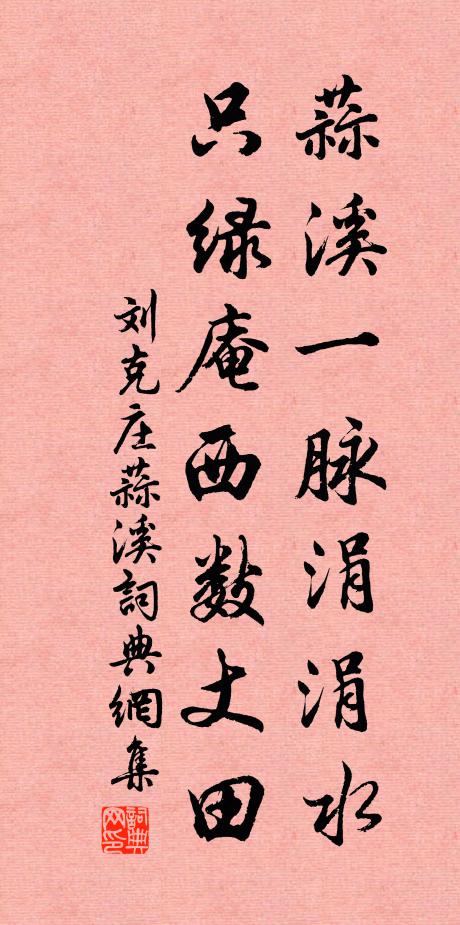 蒜溪一脉涓涓水
只绿庵西数丈田
刘克庄蒜溪詞典網集
詞典网印